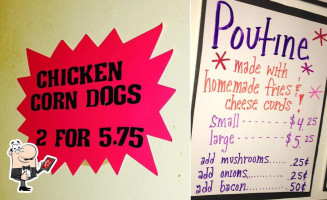 CHICKEN
CORN DOGS
2 FOR 5.75
Poutine
* made with *
homemade fries &
cheese curds!
small -------- $4.25
large -------- $5.25
add mushrooms.....25¢
add onions.......25¢
add bacon........50¢